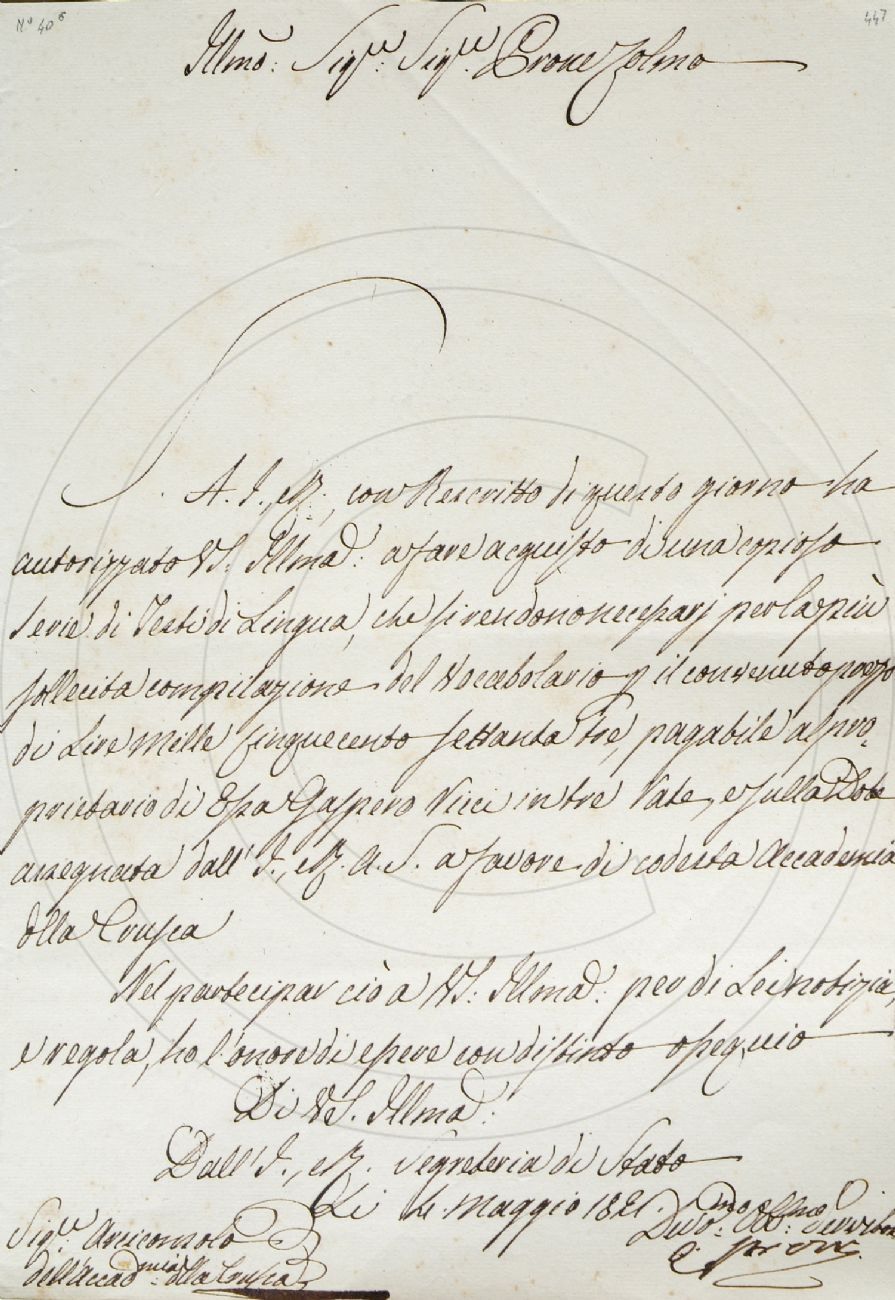 N° 40 6
447
Illmo: Sigre: Sigre: Prone Colmo
S. A. I., e R., con Rescritto di questo giorno ha
autorizzato VS. Illma: a fare acquisto di una copiosa
serie di Testi di Lingua, che si rendono necessarj per la più
sollecita compilazione del Vocabolario p il convenuto prezzo
di Lire Mille Cinquecento settanta tre, pagabile a spro=
prietario di Essa Gaspero Ricci in tre Rate, e sulla Dote
assegnata dall' I., e R. A. S. a favore di codesta Accademia
della Crusca
Nel partecipar ciò a VS: Illma: per di Lei notizia,
e regola, ho l'onore di essere con distinto ossequio
Di VS. Illma:
Dall' I., e R. Segreteria di Stato
Li 4. Maggio 1821.
Sigre: Arciconsolo
dell'Accadmia: della Crusca
Devo: Obb:mo Servitore